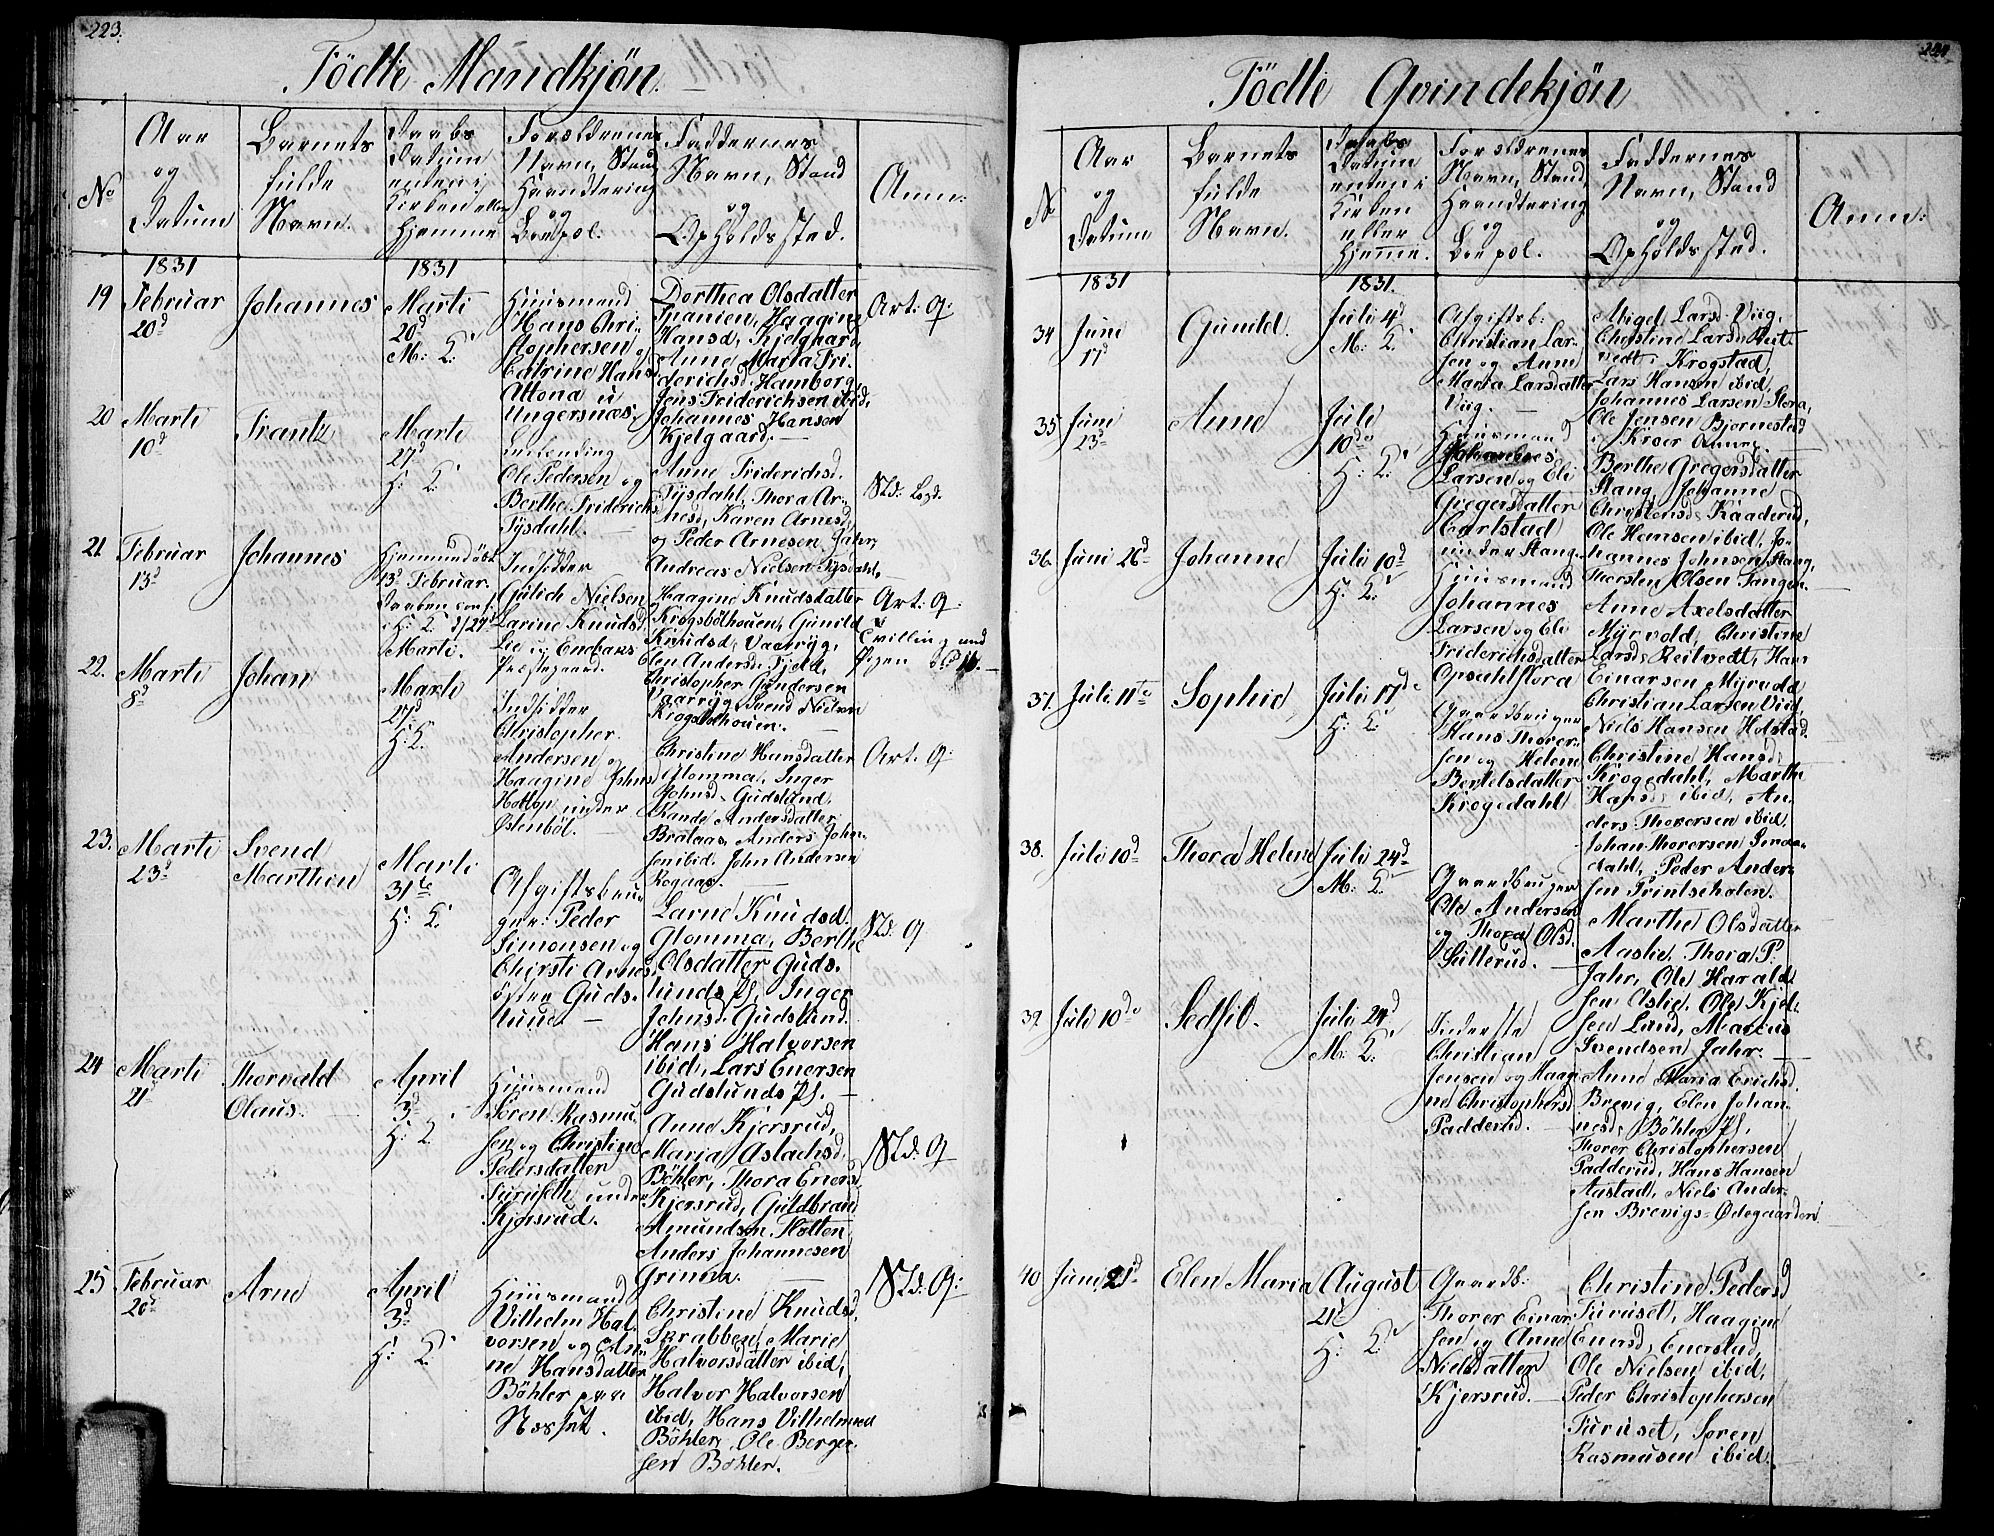 223.
Födte Mandkjön.
No
Aar
og
Datum
Barnets
fulde
Navn.
Daabs
Datum
enten i
Kirken eller
hjemme
Forældrenes
Navn, Stand
Haandtering
og
Boepæl.
Faddernes
Navn, Stand
og
Opholdssted.
Anm:
1831
1831
19
Februar
20d
Johannes
Marti
20d
M: K.
Huusmand
Hans Chri-
stophersen og
Catrine Hans
Altona u
Ungersnæs.
Dorthea Olsdatter
Spanien, Haagine
Hansd, Kjelgaard,
Anne Maria Fri-
derichsd Hamborg
Jens Friderichsen ibid,
Johannes Hansen
Kjelgaard.
Art: q:
20
Marti
10d
Frantz
Marti
27d
H: K.
Ole Pedersen og
Berthe Friderichs
Tysdahl.
Anne Friderichsd.
Tysdahl, Thora Ar-
nesd, Karen Arnesd,
og Peder Arnesen Jahr,
Andreas Nielsen Tysdahl.
21
Februar
13d
Johannes
Hjemmedöbt
13d Februar.
Daaben conf.
i H: K. d/27d
Marti.
Indsidder
Gulich Nielsen
Larine Knudsd
Lie u Enebaks
Præstegaard.
Haagine Knudsdatter
Krogsböthouen, Gunild
Knudsd, Vaaryg,
Elen Andersd Fjeld,
Christopher Gundersen
Vaaryg, Svend Nielsen
Krogsböthouen.
Art: q:
Tvilling med
Pigen
22.
Marti
8d
Johan
Marti
27d
H: K.
Indsidder
Christopher
Andersen og
Haagine Johns
under
Østenböl.
Christine Hansdatter
Glomma, Inger
Johnsd Gudslund,
Rande Andersdatter
Brataas, Anders Johan-
sen ibid. John Andersen
Rognaas.
Art. q:
23.
Marti
23d
Svend
Marthin
Marti
31te
H: K.
Afgiftsbru-
ger: Peder
Simonsen og
Chirsti Arnes
Guds-
lund.
Larne Knudsd.
Glomma, Berthe
Olsdatter Guds-
lunds Pl, Inger
Johnsd. Gudslund.
Hans Halvorsen
ibid, Lars Enersen
Gudslunds Pl.
Sld: q
24
Marti
21d
Thorvald
Olaus.
April
3d
H: K
Huusmand
Sören Rasmu-
sen og Christine
Pedersdatter
Furuseth under
Kjersrud.
Anne Kjersrud,
Maria Aslachsd,
Böhler, Thora Enersd
Kjersrud, Guldbrand
Amundsen Hotten
Anders Johannesen
Grinna.
Sld: q
25
Februar
20d
Arne
April
3d
H: K.
Huusmand
Vilhelm Hal-
vorsen og An-
ne Hansdatter
Böhler paa
Næsset.
Christine Knudsd,
Skrabben, Marie
Halvorsdatter ibid,
Halvor Halvorsen
ibid, Hans Vilhelmsen
Böhler, Ole Berger-
sen Böhler.
Sld: q:
224
Födte Qvindekjön
No
Aar
og
Datum
Barnets
fulde
Navn.
Daabs
Datum
enten i
Kirken
eller
hjemme.
Forældrenes
Navn, Stand,
Haandtering
og
Boepæl.
Faddernes
Navn, Stand
og
Opholdssted.
Anm:
1831
1831.
34
Juni
17d
Gunild.
Juli 4d
M: K.
Afgiftsb:
Christian Lar-
sen og Anne
Maria Larsdatter
Viig.
Abigel Larsd Viig,
Christine Larsd Reit-
vedt, i Krogstad,
Lars Hansen ibid,
Johannes Larsen Flora,
Ole Jensen Bjørnestad
i Kroer
35
Juni
13d
Anne
Juli
10de
H: K.
Huusmand
Johannes
Larsen og Eli
Gregersdatter
Carlstad
under Stang.
Berthe Gregersdatter
Stang, Johanne
Christensd. Kaaderud,
Ole Hansen ibid, Jo-
hannes Johnsen Stang,
Thorsten Olsen Tangen.
36.
Juni 26d
Johanne
Juli 10d
H: K.
Huusmand
Johannes
Larsen og Eli
Friderichsdatter
Opsahl flora
Anne Axelsdatter
Myrvold, Christine
Larsd Reitvedt, Hans
Einarsen Myrvold
Christian Larsen Viid,
Niels Hansen Holstad.
37.
Juli 11te
Sophie
Juli 17de
H: K.
Gaardbruger
Hans Thorer-
sen og Helene
Bertelsdatter
Krogedahl
Christine Hansd.
Krogedahl, Marthe
Hansd. ibid, An-
ders Thorersen ibid.
Johan Thorersen
dahl, Peder Ander-
sen Printseholen.
38.
Juli 10d
Thora Helene
Juli 24d
M: K.
Gaardbruger
Ole Andersen
og Thora Olsd.
Sütterud.
Marthe Olsdatter
Aaslie, Thora P.
Jahr, Ole Harald-
sen Aslie, Ole Kjel-
sen Lund, Marcus
Svendsen Jahr.
39
Juli 10de
Sedsil.
Juli 24d
M: K.
Inderste
Christian
Jensen og Haagi-
ne Christophersd
Padderud.
Anne Maria Erichsd.
Brevig, Elen Johan-
nesd, Böhler Pl.
Thorer Christophersen
Padderud, Hans Hansen
Aastad, Niels Ander-
sen Brevigs-Ødegaarden
40
Juni 21d
Elen Maria
August
21d
H: K.
Gaardb:
Thorer Einar-
sen og Anne
Nielsdatter
Kjersrud.
Christine Pedersd
Furuset, Haagine
Enersd, Enerstad,
Ole Nielsen ibid,
Peder Christophersen
Furuset, Sören
Rasmusen ibid.